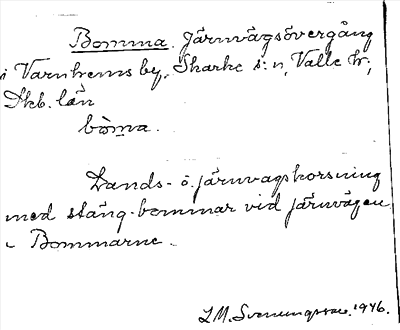 Bomma. Järnvägsövergång
i Varnhems by, Skarke s:n, Valle hr,
Skb. län
bòma.
Lands- o. järnvägskorsning
med stäng-bommar vid järnvägen
~ Bommarne.
L.M. Svenungsson. 1946.